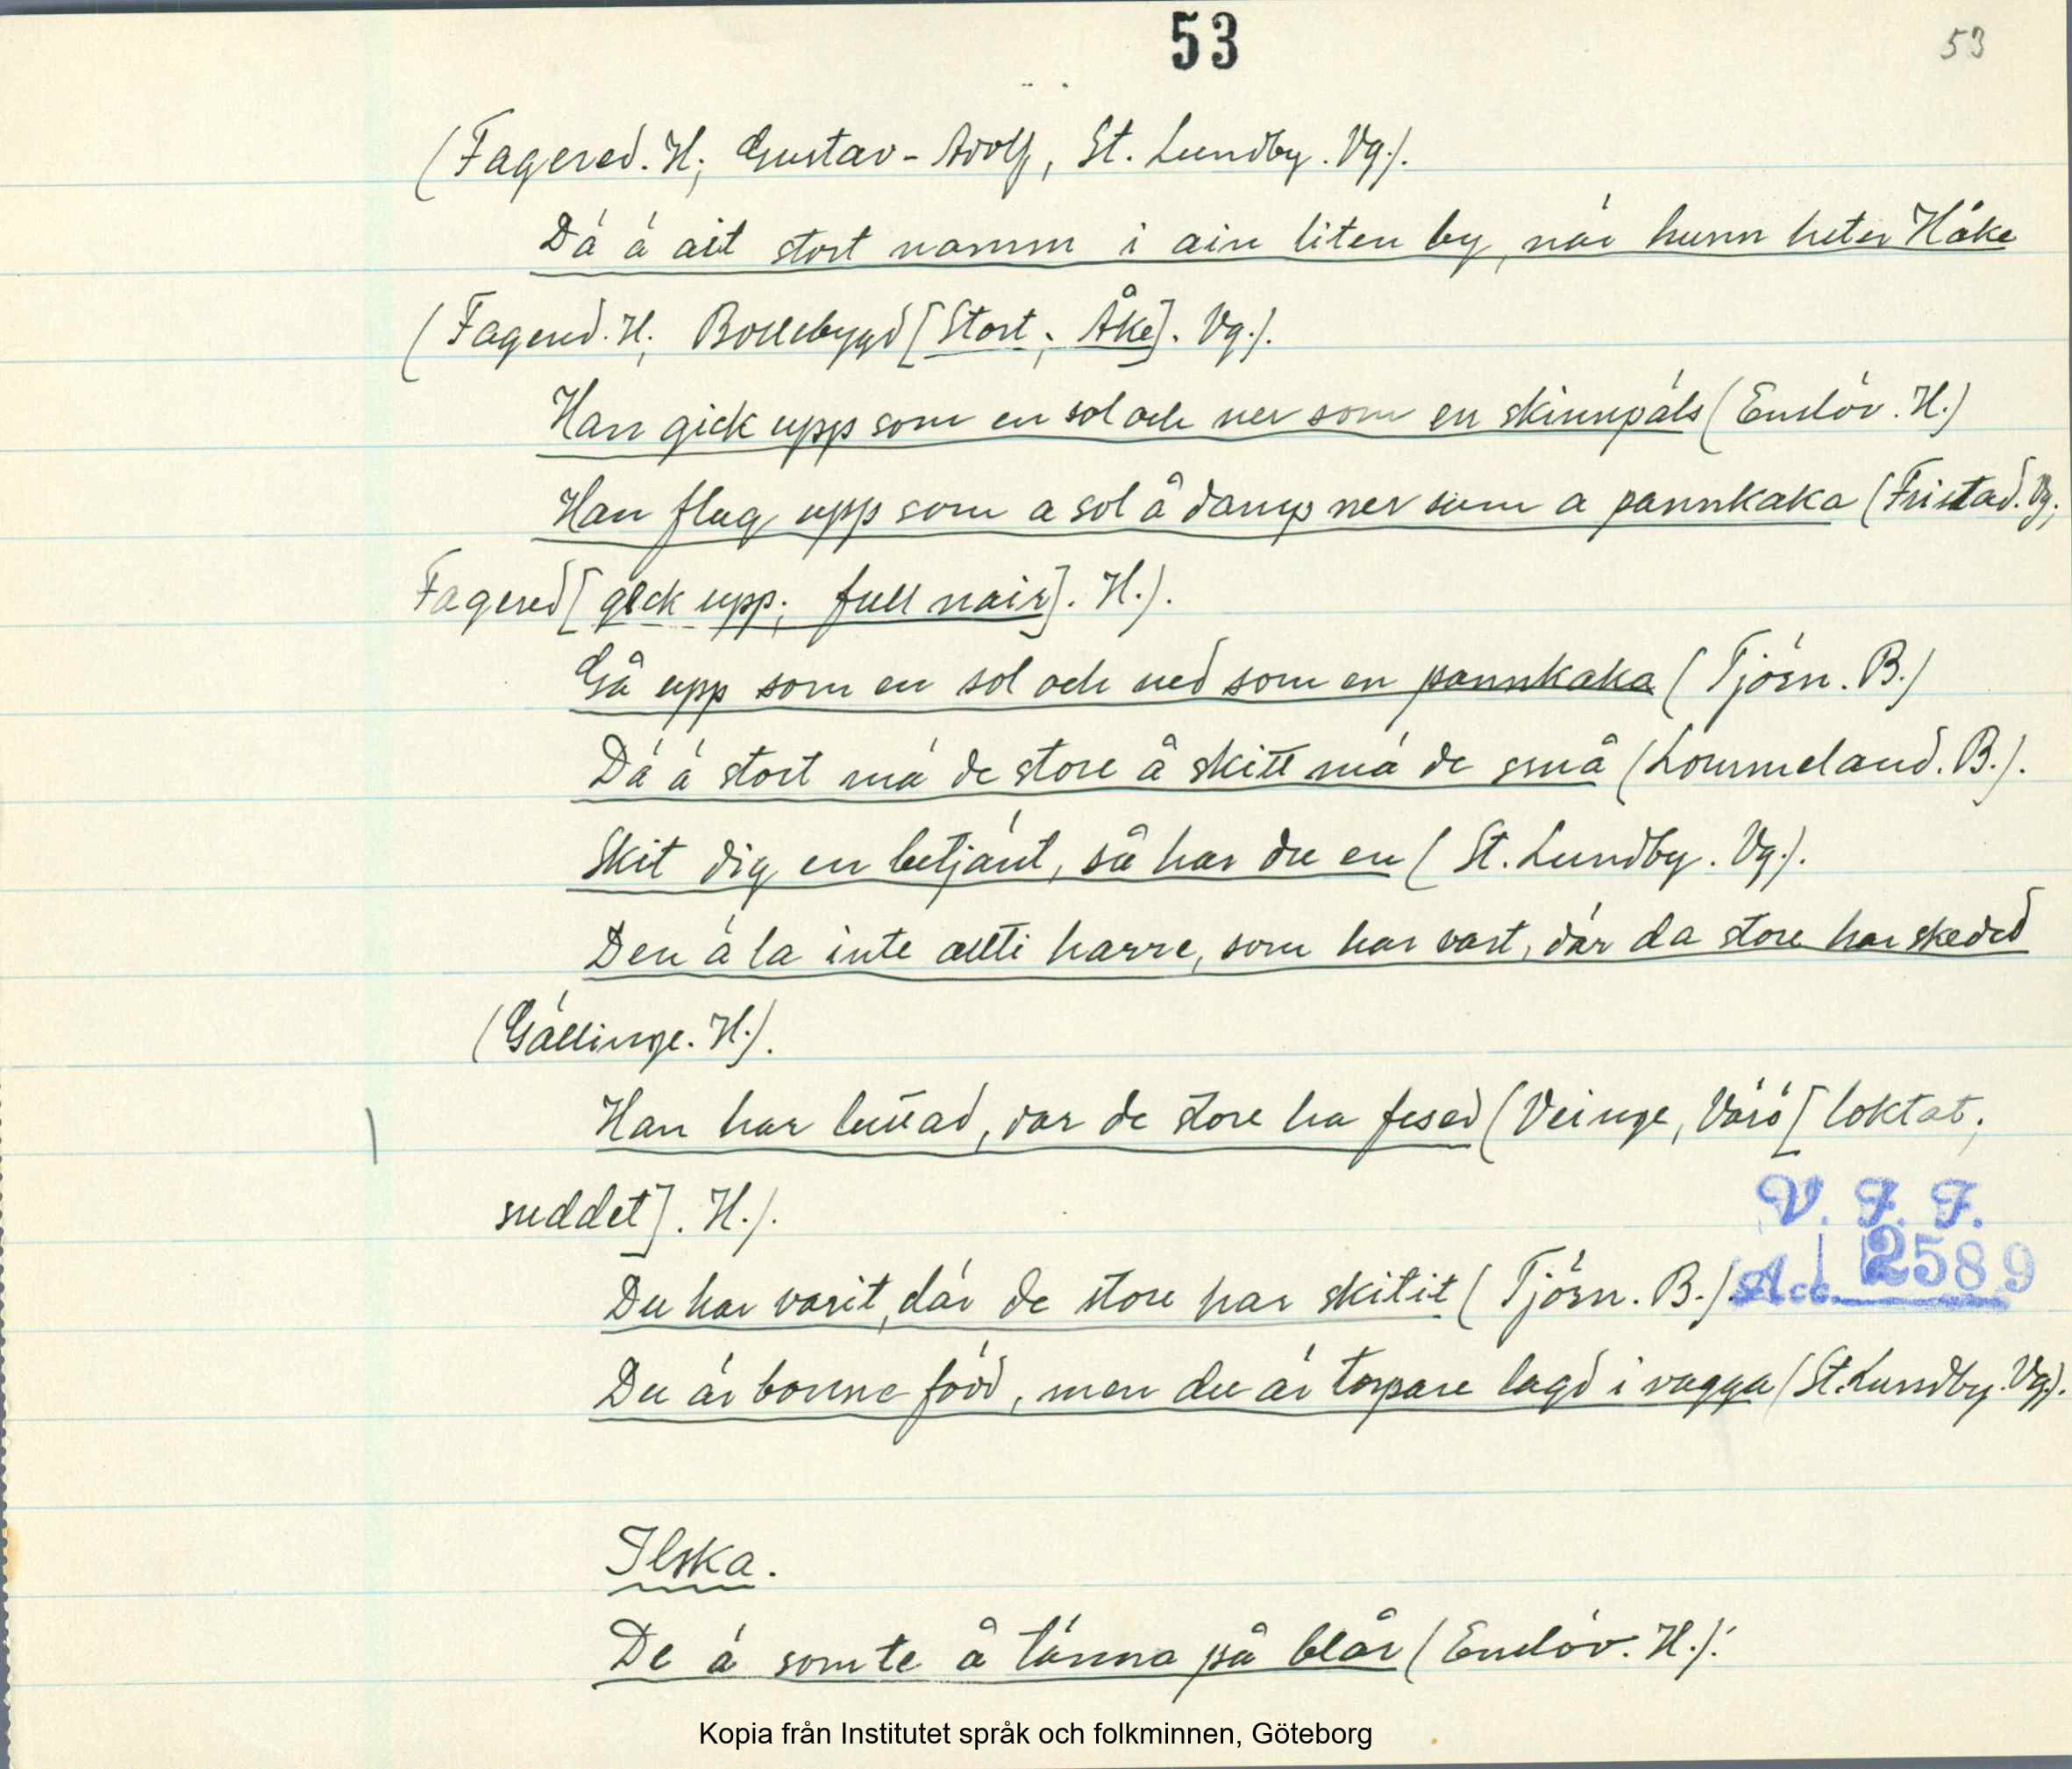 53
53
(Fagered. H; Gustav-Adolf, St. Lundby. Vg.).
Dä ä ait stort namm i ain liten by, när hunn heter Häke
(Fagered. H; Bollebygd [Stort; Åke]. Vg.).
Han gick upp som en sol och ner som en skinnpäls (Enslöv. H.)
Han flug upp som a sol å damp ner som a pannkaka (Fristad. Vg;
Fagered [geck upp; full nair]. H.).
Gå upp som en sol och ned som en pannkaka (Tjörn. B.)
Dä ä stort mä de store å skitt mä de små (Lommeland. B.).
Skit dig en betjänt, så har du en (St. Lundby. Vg.).
Den ä la inte allti harre, som har vart, där da store har skeded
(Gällinge. H.).
Han har luttad, dar de store ha fesed (Veinge, Värö [loktat;
suddet]. H.).
V. F. F.
Du har varit, där de store har skitit (Tjörn. B.).
Acc. 2589
Du är bonne född, men du är torpare lagd i vagga (St. Lundby. Vg).
Ilska.
De ä som te å tänna på blår (Enslöv. H.).
Kopia från Institutet språk och folkminnen, Göteborg